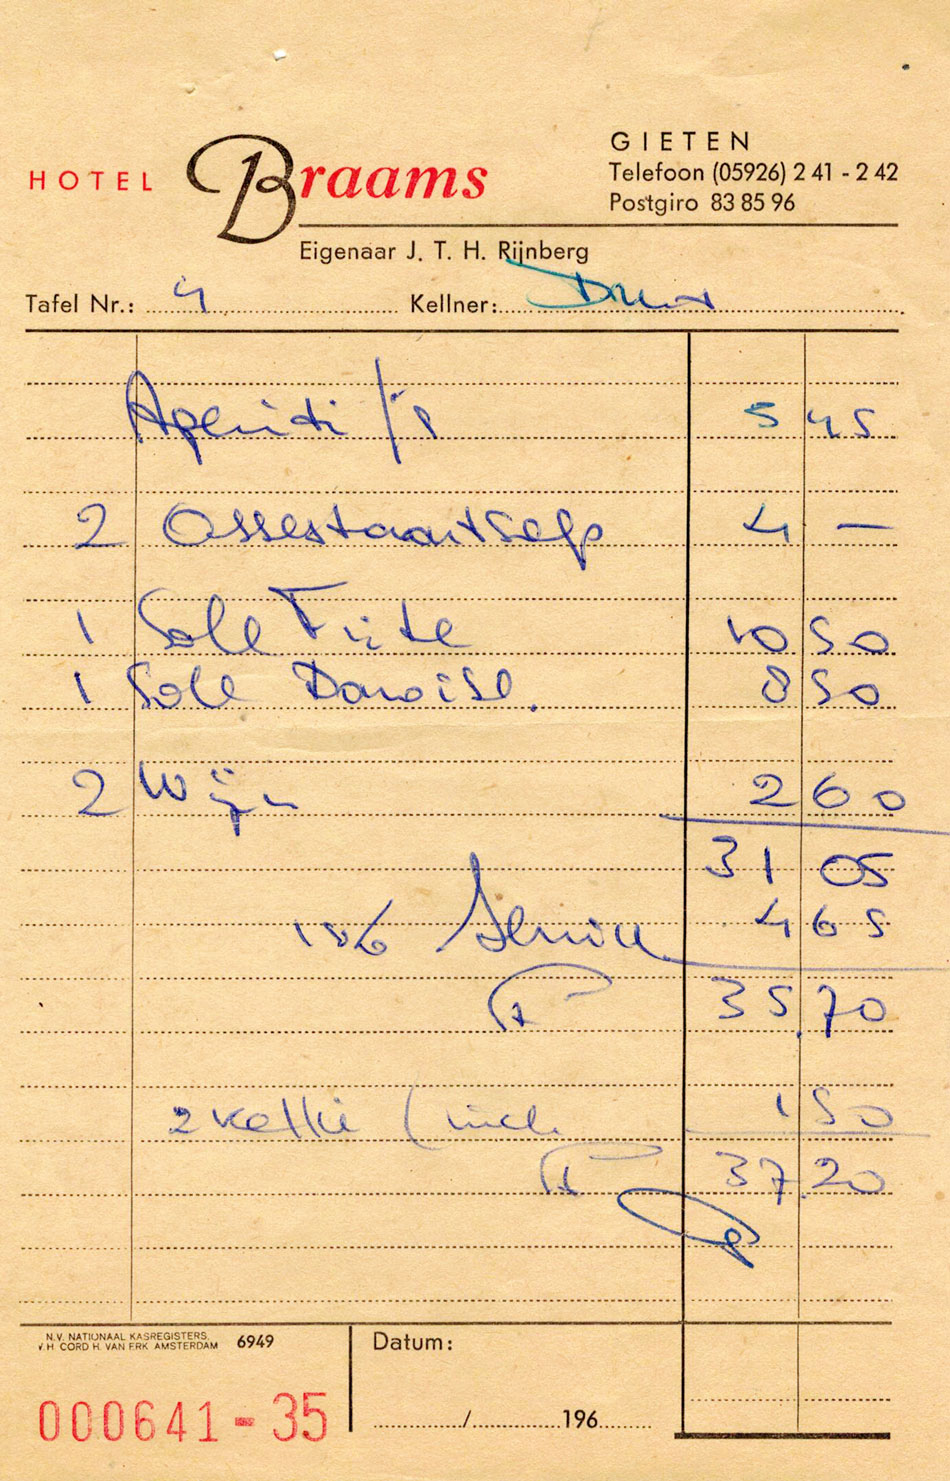 HOTEL Braams
GIETEN
Telefoon (05926) 2 41 - 2 42
Postgiro 83 85 96
Eigenaar J. T. H. Rijnberg
Tafel Nr.: 4 Kellner:
Aperitif's 5 45
2 Ossestaartsoep 4 —
1 Sole Frite 10 50
1 Sole 8 50
2 Wijn 2 60
31 05
15% Service 4 65
35,70
2 koffie (incl. 1 50
37.20
N.V. NATIONAAL KASREGISTERS,
V.H CORD H. VAN ERK AMSTERDAM 6949
Datum:
000641-35
/ 196